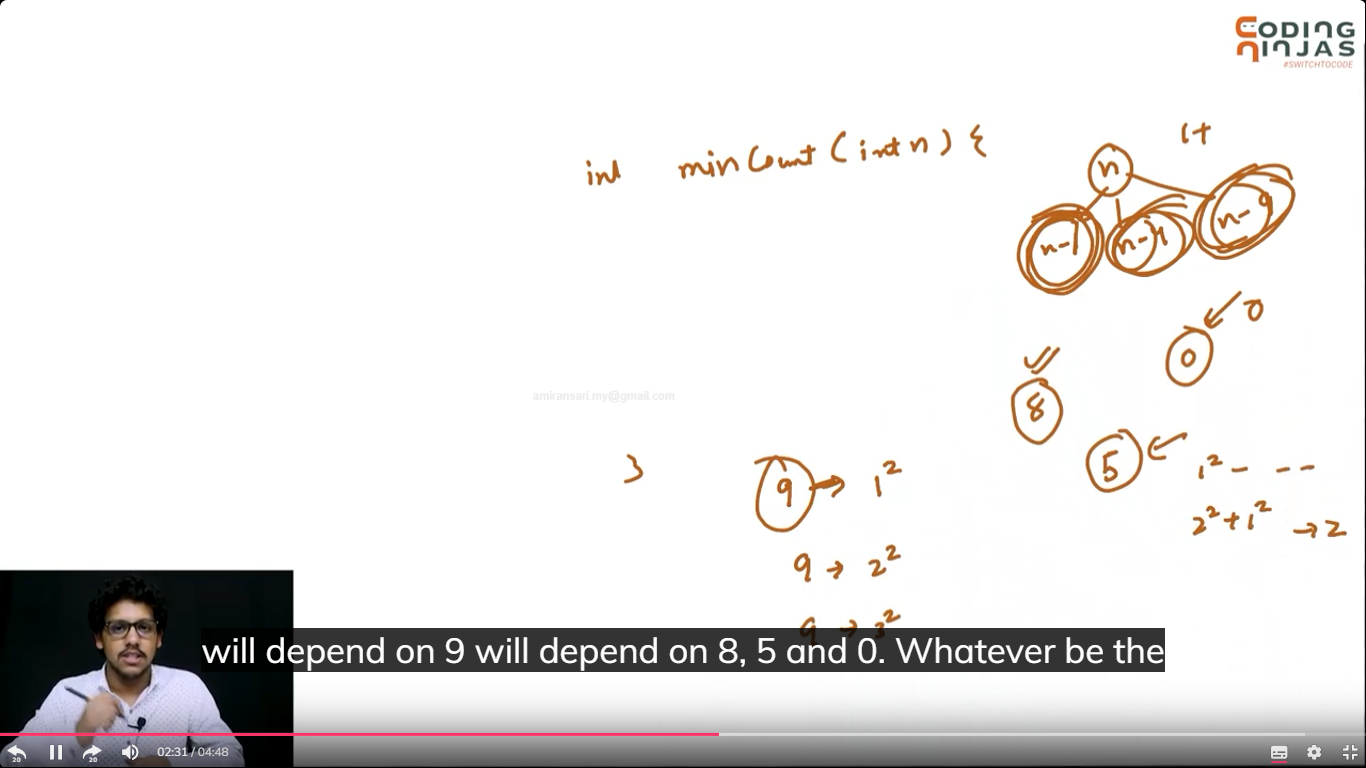 CODING
NINJAS
#SWITCHTOCODE
int minCount (int n) {
1+
n
n-1 n-4 n-9
0
0
8
5
1² - - -
2² + 1² → 2
}
9 → 1²
9 → 2²
9 → 3²
amiransari.my@gmail.com
will depend on 9 will depend on 8, 5 and 0. Whatever be the
20 20 02:31 / 04:48